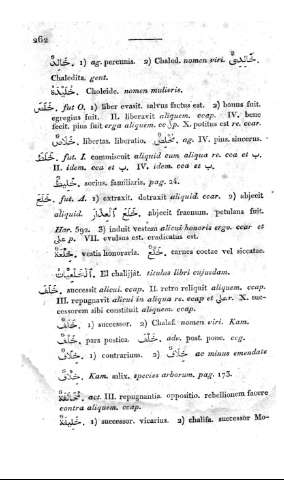 262
خَالِدٌ. 1) ag. perennis. 2) Chaled. nomen viri. خَالِدِىٌّ
Chaledita. gent.
خُلَيْدَةُ. Choleide. nomen mulieris.
خَلَصَ. fut O. 1) liber evasit. salvus factus est. 2) bonus fuit.
egregius fuit. II. liberavit aliquem. ccap. IV. bene
fecit. pius fuit erga aliquem. cc لِ p. X. potitus est re. ccar.
خَلَاصٌ. libertas. liberatio. مُخْلِصٌ. ag. IV. pius. sincerus.
خَلَطَ. fut. I. commiscuit aliquid cum aliqua re. cca et ب.
II. idem. cca et ب. IV. idem. cca et ب.
خَلِيطٌ. socius. familiaris. pag. 24.
خَلَعَ. fut. A. 1) extraxit. detraxit aliquid. ccar. 2) abjecit
aliquid. خَلَعَ الْعِذَارَ. abjecit fraenum. petulans fuit.
Har. 592. 3) induit vestem alicui honoris ergo. ccar et
على p. VII. evulsus est. eradicatus est.
خِلْعَةٌ. vestis honoraria. خَلْعٌ. carnes coctae vel siccatae.
الْخَلَعِيَّاتُ. El chalijjât. titulus libri cujusdam.
خَلَفَ. successit alicui. ccap. II. retro reliquit aliquem. ccap.
III. repugnavit alicui in aliqua re. ccap et على r. X. suc-
cessorem sibi constituit aliquem. ccap.
خَلَفٌ. 1) successor. 2) Chalaf. nomen viri. Kam.
خَلْفٌ. pars postica. خَلْفَ. adv. post. pone. ccg.
خِلَافٌ. 1) contrarium. 2) خِلَافٌ ac minus emendate
خِلَّافٌ. Kam. salix. species arborum. pag. 173.
مُخَالَفَةٌ. act. III. repugnantia. oppositio. rebellionem facere
contra aliquem. ccap.
خَلِيفَةٌ. 1) successor. vicarius. 2) chalifa. successor Mo-